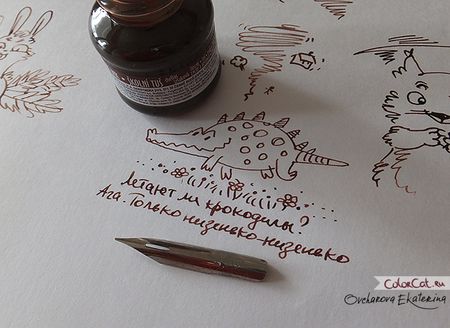 ŠKOLNÍ TUŠ
Летают ли крокодилы?
Ага. Только низенько-низенько
ColorCat.ru
Ovcharova Ekaterina